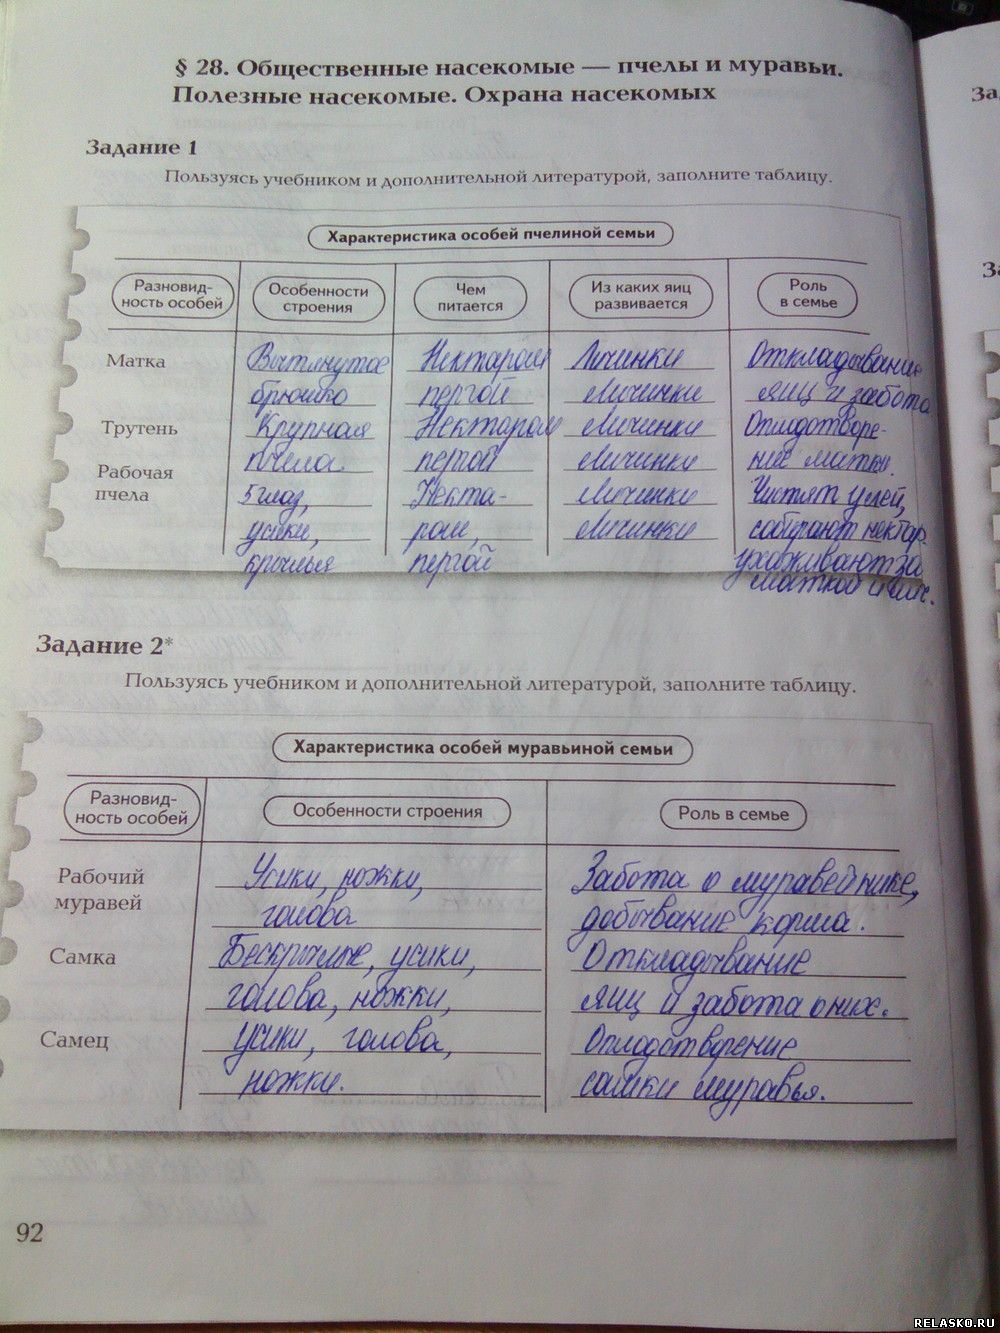 § 28. Общественные насекомые — пчелы и муравьи.
Полезные насекомые. Охрана насекомых
Задание 1
Пользуясь учебником и дополнительной литературой, заполните таблицу.
Характеристика особей пчелиной семьи
Разновид-
ность особей
Особенности
строения
Чем
питается
Из каких яиц
развивается
Роль
в семье
Матка
Вытянутое
брюшко
Нектаром
пергой
Личинки
Личинки
Откладывание
яиц и забота
Трутень
Крупная
пчела
Нектаром
пергой
Личинки
Личинки
Оплодотворе-
ние матки.
Рабочая
пчела
5 глаз,
усики,
крылья
Некта-
ром,
пергой
Личинки
Личинки
Чистят улей,
собирают нектар
ухаживают за
маткой и
Задание 2*
Пользуясь учебником и дополнительной литературой, заполните таблицу.
Характеристика особей муравьиной семьи
Разновид-
ность особей
Особенности строения
Роль в семье
Рабочий
муравей
Усики, ножки,
голова
Забота о муравейнике,
добывание корма.
Самка
Бескрылые, усики,
голова, ножки,
Откладывание
яиц и забота о них.
Самец
усики, голова,
ножки.
Оплодотворение
самки муравья.
92
RELASKO.RU
За
За